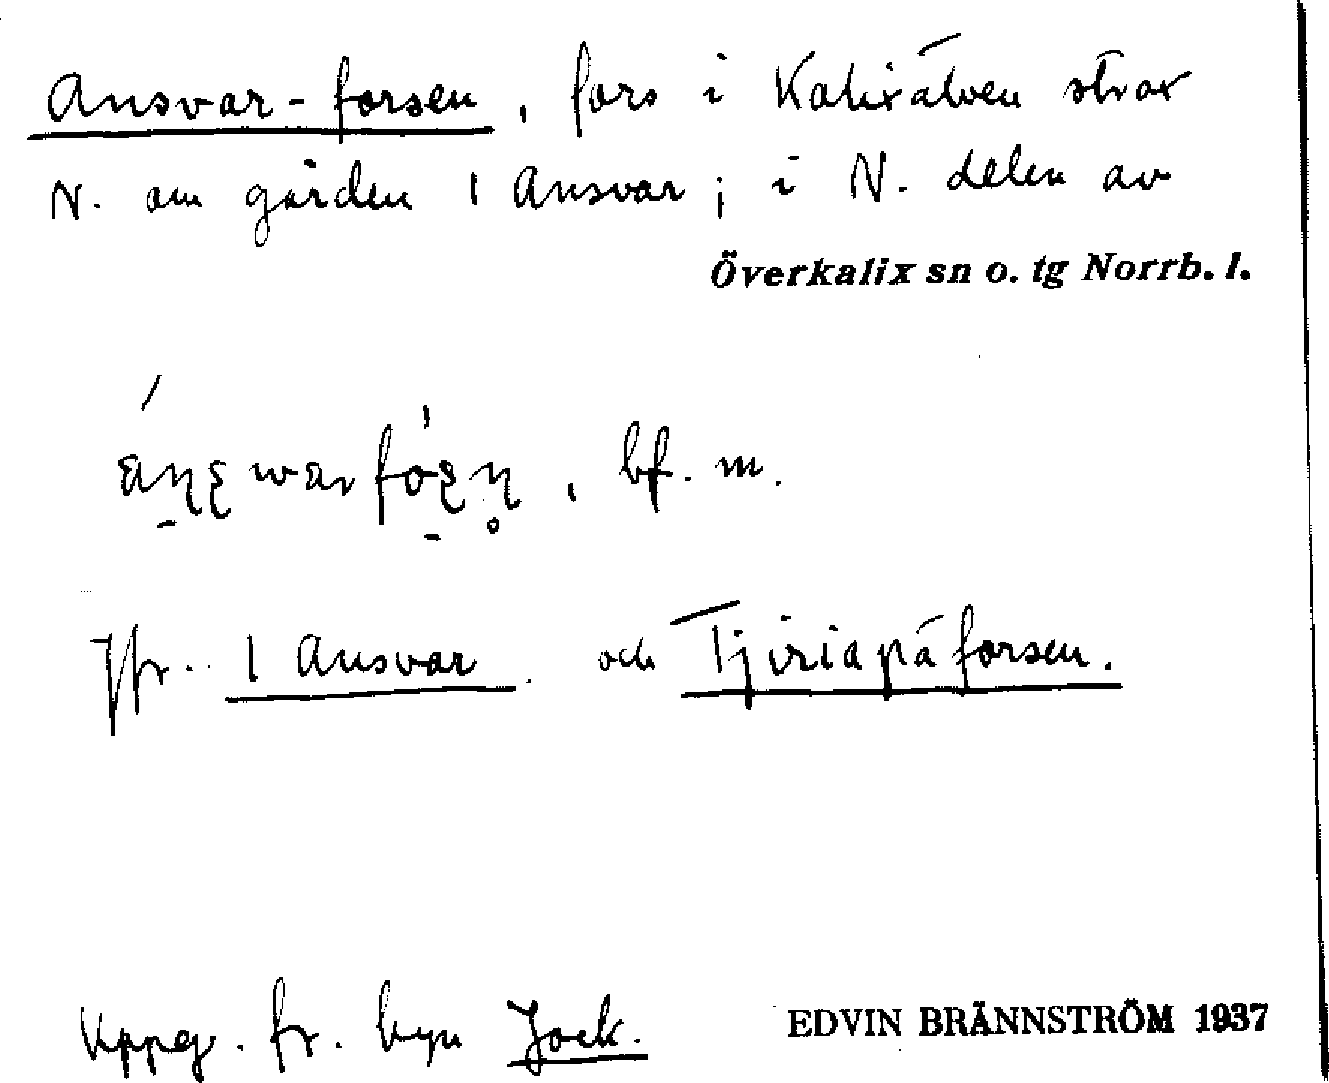 Ansvar-forsen, fors i Kalixälven strax
N. om gården 1 Ansvar; i N. delen av
Överkalix sn o. tg Norrb. l.
, bf. m.
Jfr. 1 Ansvar och Tjiriapäforsen.
Uppg. fr. byn Jock.
EDVIN BRÄNNSTRÖM 1937